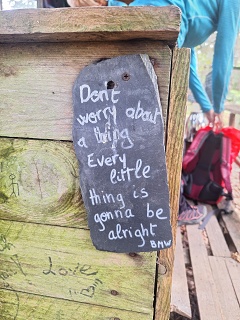 Don't
worry about
a thing
Every
little
thing is
gonna be
alright
BMW
Love